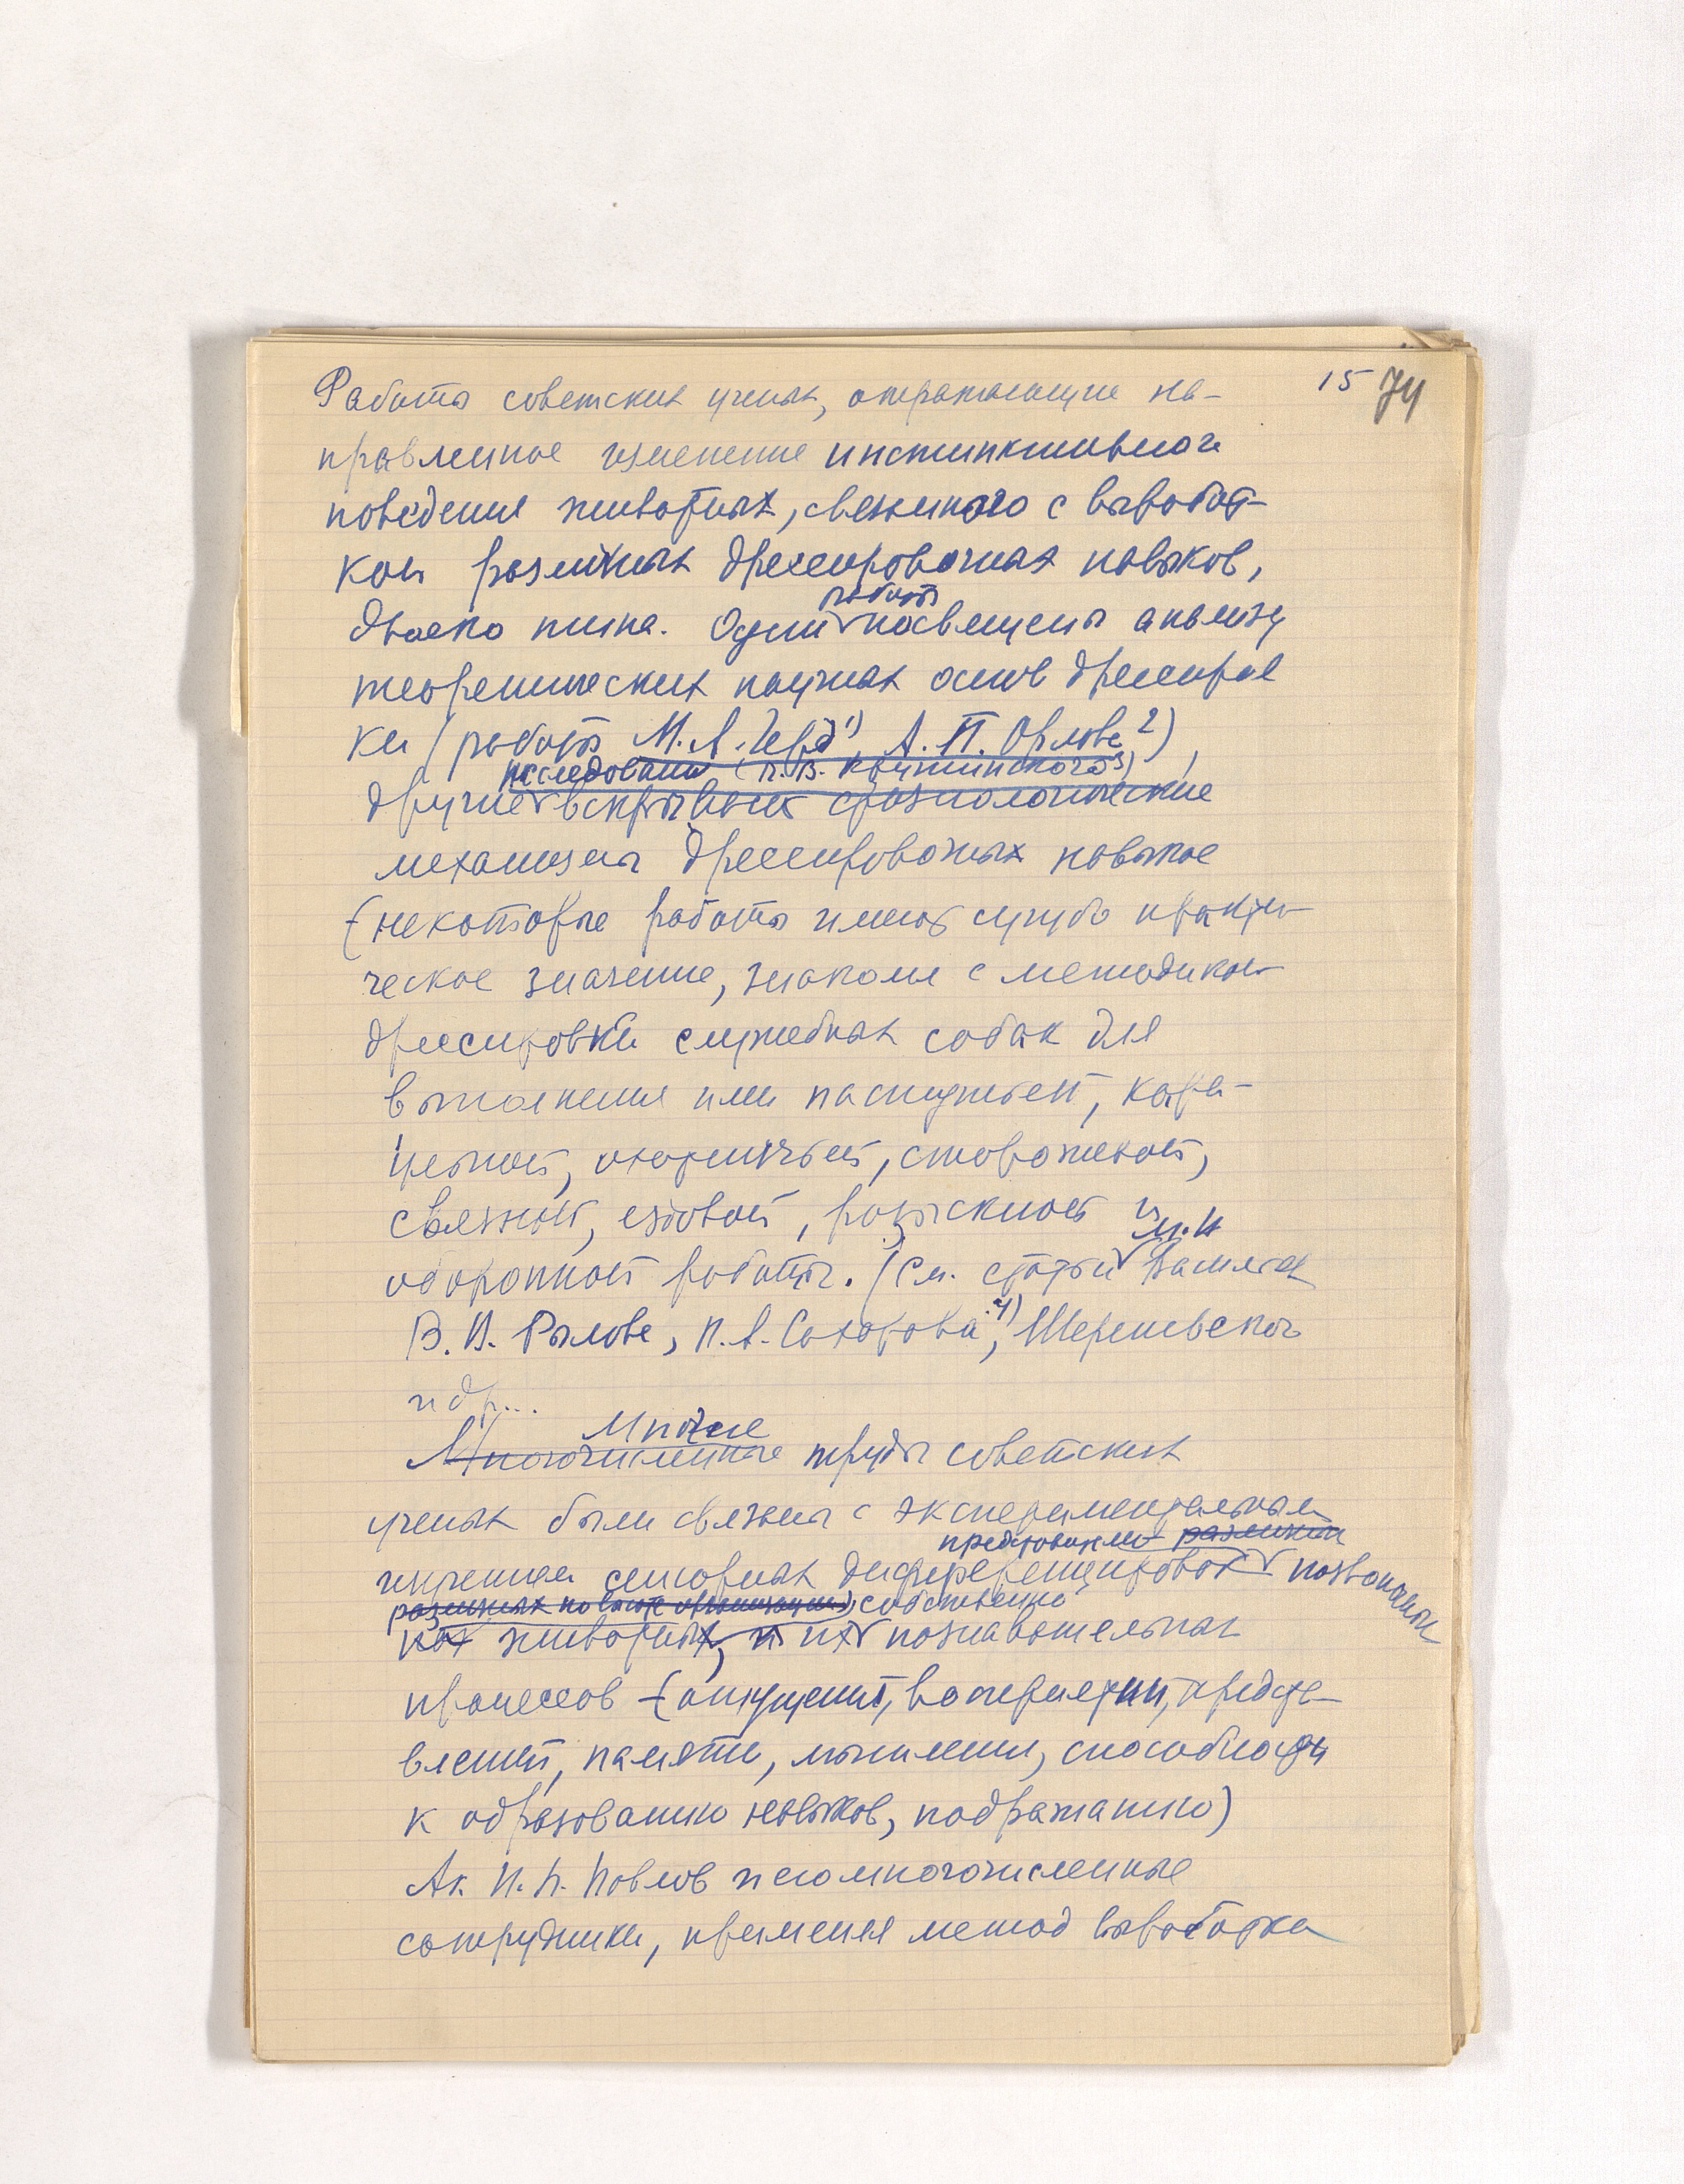 15 74
Работы советских ученых, отражающие на-
правленное изменение инстинктивного
поведения животных, связанного с выработ-
кой различных дрессировочных навыков,
двоякого типа. Одни работы посвещены анализу
теоретических научных основ дрессиров
ки (работы М.А. Герд 1), А.П. Орлова 2)),
исследования (Л.В. Крушинского 3)
другие вскрывают физиологические
механизмы дрессировочных навыков
(некоторые работы имеют сугубо практи-
ческое значение, знакомя с методикой
дрессировки служебных собак для
выполнения ими пастушьей, кара-
ульной, охотничьей, сторожевой,
связной, ездовой, розыскной и
оборонной работы. (См. статьи
В.В. Рылова, П.А. Сахарова 4), Шерешевского
и др...
Многие
Многочисленные труды советских
ученых были связаны с экспериментальным
изучением сенсорных дифференцировок позвоночных
собственно
животных, и их познавательных
процессов (ощущений, восприятий, предста-
влений, памяти, мышления, способности
к образованию навыков, подражанию)
Ак. И.П. Павлов и его многочисленные
сотрудники, применяя метод выработки